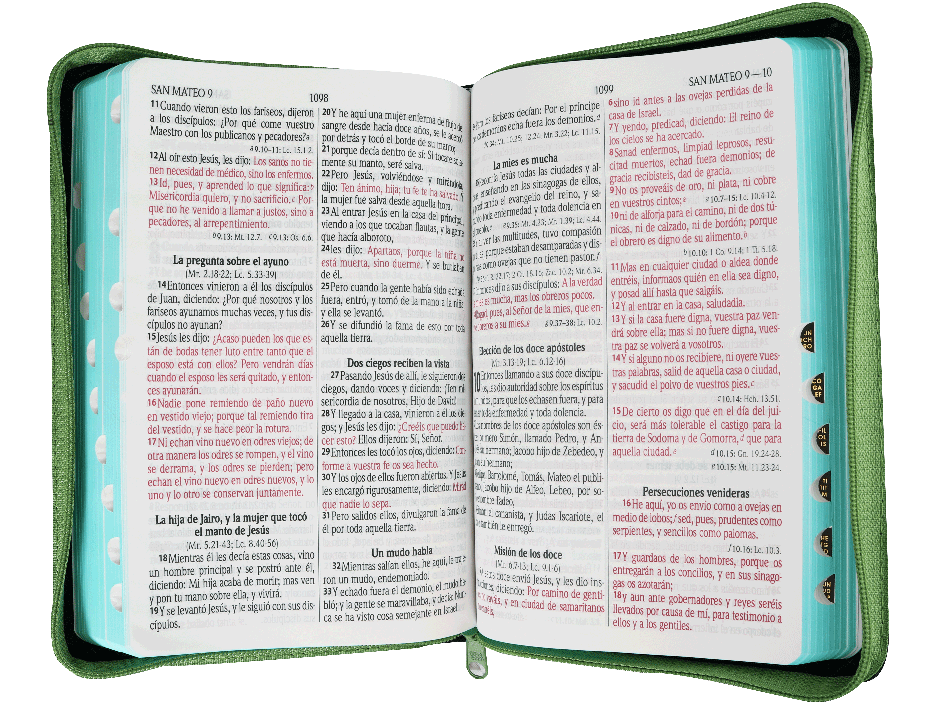 SAN MATEO 9
1098
11Cuando vieron esto los fariseos, dijeron
a los discípulos: ¿Por qué come vuestro
Maestro con los publicanos y pecadores?a
a 9.10-11: Lc. 15.1-2.
12Al oír esto Jesús, les dijo: Los sanos no tie-
nen necesidad de médico, sino los enfermos.
13Id, pues, y aprended lo que significa:b
Misericordia quiero, y no sacrificio.c Por-
que no he venido a llamar a justos, sino a
pecadores, al arrepentimiento.
b 9.13: Mt. 12.7. c 9.13: Os. 6.6.
La pregunta sobre el ayuno
(Mr. 2.18-22; Lc. 5.33-39)
14Entonces vinieron a él los discípulos
de Juan, diciendo: ¿Por qué nosotros y los
fariseos ayunamos muchas veces, y tus dis-
cípulos no ayunan?
15Jesús les dijo: ¿Acaso pueden los que es-
tán de bodas tener luto entre tanto que el
esposo está con ellos? Pero vendrán días
cuando el esposo les será quitado, y enton-
ces ayunarán.
16Nadie pone remiendo de paño nuevo
en vestido viejo; porque tal remiendo tira
del vestido, y se hace peor la rotura.
17Ni echan vino nuevo en odres viejos; de
otra manera los odres se rompen, y el vino
se derrama, y los odres se pierden; pero
echan el vino nuevo en odres nuevos, y lo
uno y lo otro se conservan juntamente.
La hija de Jairo, y la mujer que tocó
el manto de Jesús
(Mr. 5.21-43; Lc. 8.40-56)
18Mientras él les decía estas cosas, vino
un hombre principal y se postró ante él,
diciendo: Mi hija acaba de morir; mas ven
y pon tu mano sobre ella, y vivirá.
19Y se levantó Jesús, y le siguió con sus dis-
cípulos.
20Y he aquí una mujer enferma de flujo de
sangre desde hacía doce años, se le acercó
por detrás y tocó el borde de su manto;
21porque decía dentro de sí: Si tocare sola-
mente su manto, seré salva.
22Pero Jesús, volviéndose y mirándola,
dijo: Ten ánimo, hija; tu fe te ha salvado. Y
la mujer fue salva desde aquella hora.
23Al entrar Jesús en la casa del principal,
viendo a los que tocaban flautas, y la gente
que hacía alboroto,
24les dijo: Apartaos, porque la niña no
está muerta, sino duerme. Y se burlaban
de él.
25Pero cuando la gente había sido echada
fuera, entró, y tomó de la mano a la niña,
y ella se levantó.
26Y se difundió la fama de esto por toda
aquella tierra.
Dos ciegos reciben la vista
27Pasando Jesús de allí, le siguieron dos
ciegos, dando voces y diciendo: ¡Ten mi-
sericordia de nosotros, Hijo de David!
28Y llegado a la casa, vinieron a él los cie-
gos; y Jesús les dijo: ¿Creéis que puedo ha-
cer esto? Ellos dijeron: Sí, Señor.
29Entonces les tocó los ojos, diciendo: Con-
forme a vuestra fe os sea hecho.
30Y los ojos de ellos fueron abiertos. Y Jesús
les encargó rigurosamente, diciendo: Mirad
que nadie lo sepa.
31Pero salidos ellos, divulgaron la fama de
él por toda aquella tierra.
Un mudo habla
32Mientras salían ellos, he aquí, le traje-
ron un mudo, endemoniado.
33Y echado fuera el demonio, el mudo ha-
bló; y la gente se maravillaba, y decía: Nun-
ca se ha visto cosa semejante en Israel.
1099
SAN MATEO 9—10
fariseos decían: Por el príncipe
demonios echa fuera los demonios.d
Mt. 10.25; 12.24; Mr. 3.22; Lc. 11.15.
La mies es mucha
Jesús todas las ciudades y al-
enseñando en las sinagogas de ellos,
predicando el evangelio del reino, y sa-
toda enfermedad y toda dolencia en
pueblo.e
e 9.35: Mt. 4.23; Mr. 1.39; Lc. 4.44.
al ver las multitudes, tuvo compasión
porque estaban desamparadas y dis-
como ovejas que no tienen pastor.f
2 Cr. 18.16; Zac. 10.2; Mr. 6.34.
Entonces dijo a sus discípulos: A la verdad
es mucha, mas los obreros pocos.
Rogad, pues, al Señor de la mies, que en-
obreros a su mies.g
g 9.37-38: Lc. 10.2.
Elección de los doce apóstoles
(Mr. 3.13-19; Lc. 6.12-16)
10 Entonces llamando a sus doce discípu-
los, les dio autoridad sobre los espíritus
para que los echasen fuera, y para
toda enfermedad y toda dolencia.
Los nombres de los doce apóstoles son és-
primero Simón, llamado Pedro, y An-
su hermano; Jacobo hijo de Zebedeo, y
Juan su hermano;
Felipe, Bartolomé, Tomás, Mateo el publi-
Jacobo hijo de Alfeo, Lebeo, por so-
Tadeo,
cananista, y Judas Iscariote, el
también le entregó.
Misión de los doce
(Mr. 6.7-13; Lc. 9.1-6)
doce envió Jesús, y les dio ins-
diciendo: Por camino de genti-
vayáis, y en ciudad de samaritanos
entréis,
6sino id antes a las ovejas perdidas de la
casa de Israel.
7Y yendo, predicad, diciendo: El reino de
los cielos se ha acercado.
8Sanad enfermos, limpiad leprosos, resu-
citad muertos, echad fuera demonios; de
gracia recibisteis, dad de gracia.
9No os proveáis de oro, ni plata, ni cobre
en vuestros cintos;a
a 10.7-15: Lc. 10.4-12.
10ni de alforja para el camino, ni de dos tú-
nicas, ni de calzado, ni de bordón; porque
el obrero es digno de su alimento.b
b 10.10: 1 Co. 9.14; 1 Ti. 5.18.
11Mas en cualquier ciudad o aldea donde
entréis, informaos quién en ella sea digno,
y posad allí hasta que salgáis.
12Y al entrar en la casa, saludadla.
13Y si la casa fuere digna, vuestra paz ven-
drá sobre ella; mas si no fuere digna, vues-
tra paz se volverá a vosotros.
14Y si alguno no os recibiere, ni oyere vues-
tras palabras, salid de aquella casa o ciudad,
y sacudid el polvo de vuestros pies.c
c 10.14: Hch. 13.51.
15De cierto os digo que en el día del jui-
cio, será más tolerable el castigo para la
tierra de Sodoma y de Gomorra,d que para
aquella ciudad.e
d 10.15: Gn. 19.24-28.
e 10.15: Mt. 11.23-24.
Persecuciones venideras
16He aquí, yo os envío como a ovejas en
medio de lobos;f sed, pues, prudentes como
serpientes, y sencillos como palomas.
f 10.16: Lc. 10.3.
17Y guardaos de los hombres, porque os
entregarán a los concilios, y en sus sinago-
gas os azotarán;
18y aun ante gobernadores y reyes seréis
llevados por causa de mí, para testimonio a
ellos y a los gentiles.